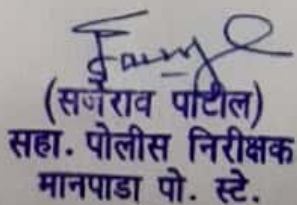 (सर्जेराव पाटील)
सहा. पोलीस निरीक्षक
मानपाडा पो. स्टे.